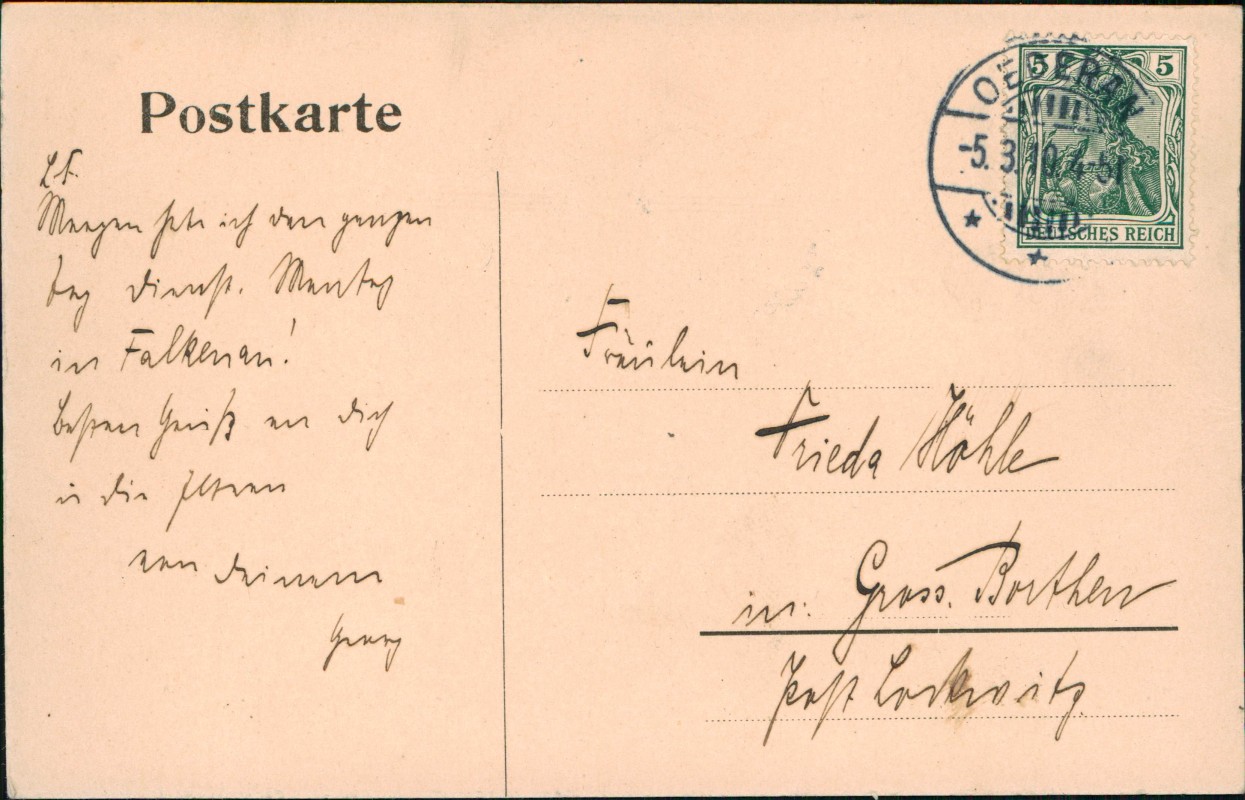 Postkarte
L. F.
Morgen habe ich den ganzen
Tag Dienst. Montag
in Falkenau!
Besten Gruß an dich
u die Eltern
von deinem
Georg
OEDERAN
-5.3.10.4-5N
5 5
DEUTSCHES REICH
Fräulein
Frieda Höhle
in: Gross. Borthen
Post Lockwitz